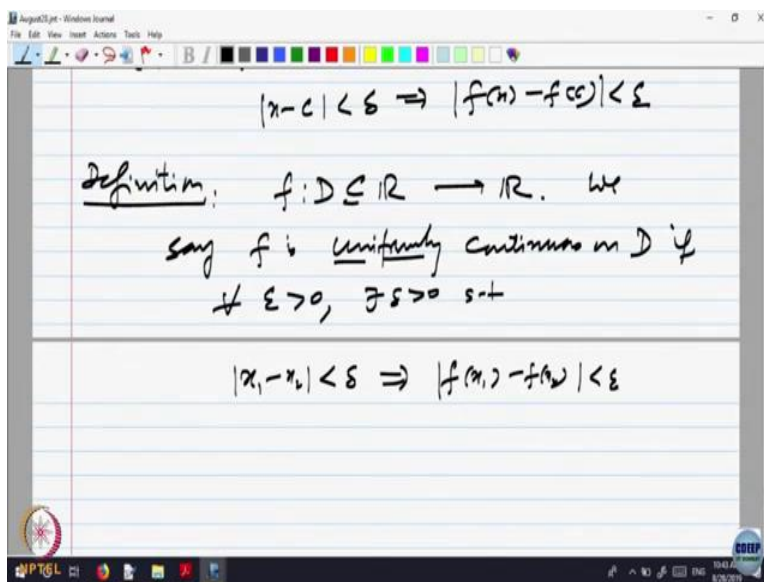 August28.jnt - Windows Journal
File Edit View Insert Actions Tools Help
|x-c| < δ ⇒ |f(x) - f(c)| < ε
Definition: f: D ⊆ ℝ → ℝ. We
say f is uniformly continuous on D if
∀ ε > 0, ∃ δ > 0 s.t
|x₁ - x₂| < δ ⇒ |f(x₁) - f(x₂)| < ε
NPTEL
CDEEP
ENG
8/28/2018